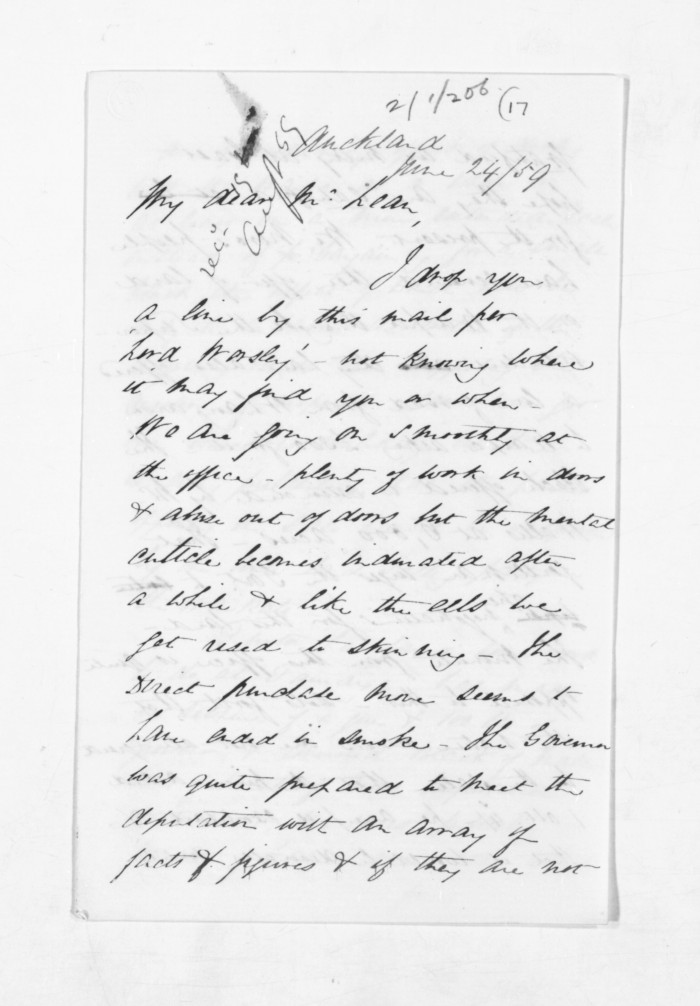 2/1/206 (17
Auckland
June 24/59
recd
Augt
My dear Mc Lean,
I drop you
a line by this mail per
'Lord Worsley' - not knowing where
it may find you or when -
We are going on smoothly at
the office - plenty of work in doors
& abuse out of doors but the mental
cuticle becomes indurated after
a while & like the eels we
get used to skinning - The
Direct purchase move seems to
have ended in smoke - The Governor
was quite prepared to meet the
deputation with an array of
facts & figures & if they are not